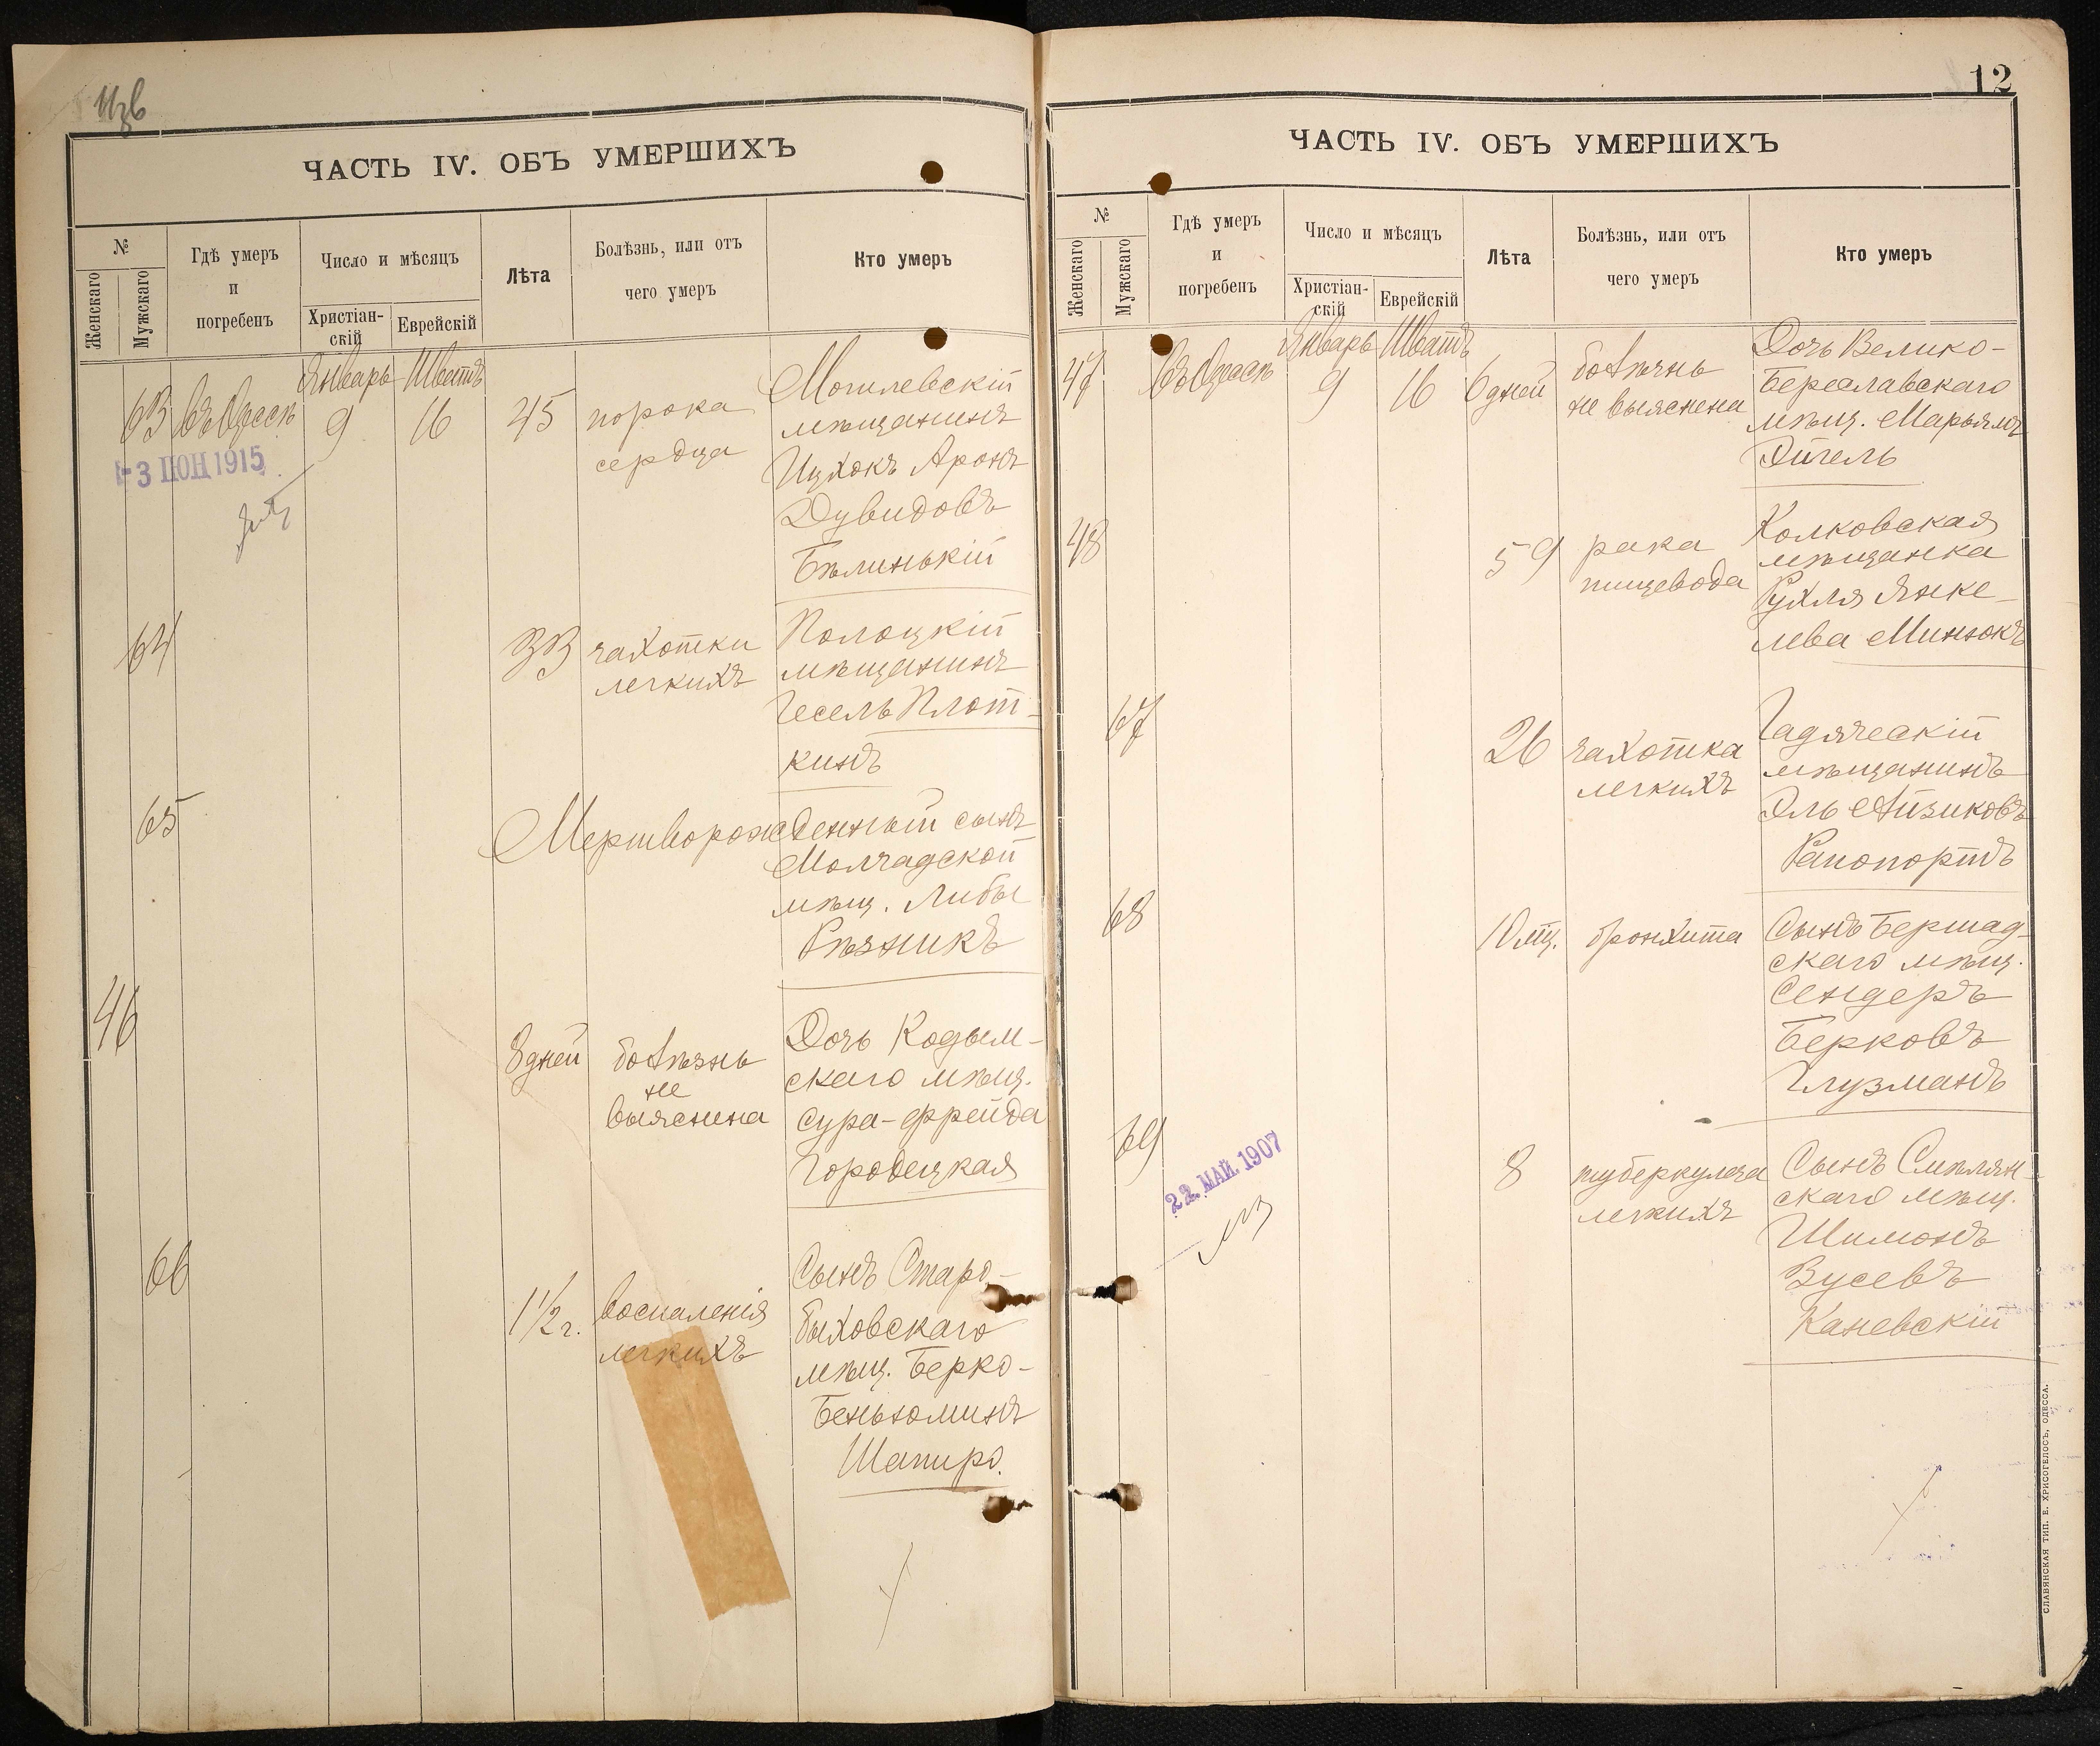 Изв
ЧАСТЬ IV. ОБЪ УМЕРШИХЪ
№
Женскаго
Мужскаго
Гдѣ умеръ
и
погребенъ
Число и мѣсяцъ
Христіан-
скій
Еврейскій
Лѣта
Болѣзнь, или отъ
чего умеръ
Кто умеръ
Январь Шватъ
63 въ Одессѣ 9 16 45
порока
сердца
Могилевскій
мѣщанинъ
Ицхокъ Аронъ
Дувидовъ
Бѣлинькій
3 ІЮН 1915
64
33
чахотки
легкихъ
Полоцкій
мѣщанинъ
Гесель Плот-
кинъ
65
Мертворожденный сынъ
Молчадской
мѣщ. Либы
Рѣзникъ
46
8 дней
болѣзнь
не
выяснена
Дочь Кодым-
скаго мѣщ.
Сура-Фрейда
Городецкая
66
1½ г.
воспаленія
легкихъ
Сынъ Старо-
быховскаго
мѣщ. Берко-
Беньюминъ
Шапиро.
12
ЧАСТЬ IV. ОБЪ УМЕРШИХЪ
№
Женскаго
Мужскаго
Гдѣ умеръ
и
погребенъ
Число и мѣсяцъ
Христіан-
скій
Еврейскій
Лѣта
Болѣзнь, или отъ
чего умеръ
Кто умеръ
Январь Шватъ
47 въ Одессѣ 9 16 6 дней
болѣзнь
не выяснена
Дочь Велико-
Береславскаго
мѣщ. Марьямъ
Эйгель
48
59
рака
пищевода
Колковская
мѣщанка
Рухля Янке-
лева Минюкъ
67
26
чахотка
легкихъ
Гадяческій
мѣщанинъ
Эль Айзиковъ
Рапопортъ
68
10 мц.
бронхита
Сынъ Бершад-
скаго мѣщ.
Сендеръ
Берковъ
Глузманъ
69
22. МАЙ. 1907
8
туберкулеза
легкихъ
Сынъ Смѣлян-
скаго мѣщ.
Шимонъ
Вусевъ
Каневскій
СЛАВЯНСКАЯ ТИП. Е. ХРИСОГЕЛОСЪ, ОДЕССА.